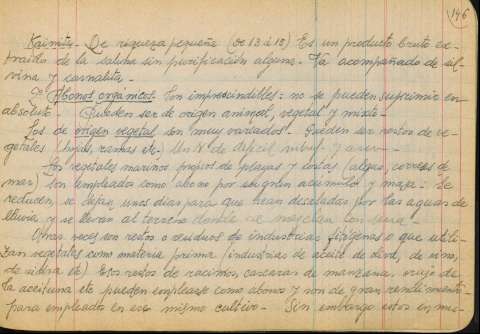 146
Kainita.- De riqueza pequeña (de 13 á 15) Es un producto bruto ex-
traido de la salina sin purificación alguna. Va acompañado de sil-
vina y carnalita.-
Abonos orgánicos. Son imprescindibles: no se pueden suprimir en
absoluto. Pueden ser de origen animal, vegetal y mixto.-
Los de origen vegetal son muy variados.- Pueden ser restos de ve-
getales (hojas, ramas etc.
Los vegetales marinos propios de playas y costas (algas, correas de
mar) son empleados como abono por su gran acumulo y masa.- Se
reducen, se dejan unos dias para que sean desaladas por las aguas de
lluvia y se llevan al terreno donde se mezclan con
Otras veces son restos o residuos de industrias o que utili-
zan vegetales como materia prima (industrias de aceite de de vino,
de sidra etc) Estos restos de racimos, cascaras de manzana, orujo de
la aceituna etc pueden emplearse como abonos y son de gran rendimiento
para empleados en ese mismo cultivo.- Sin embargo estos en